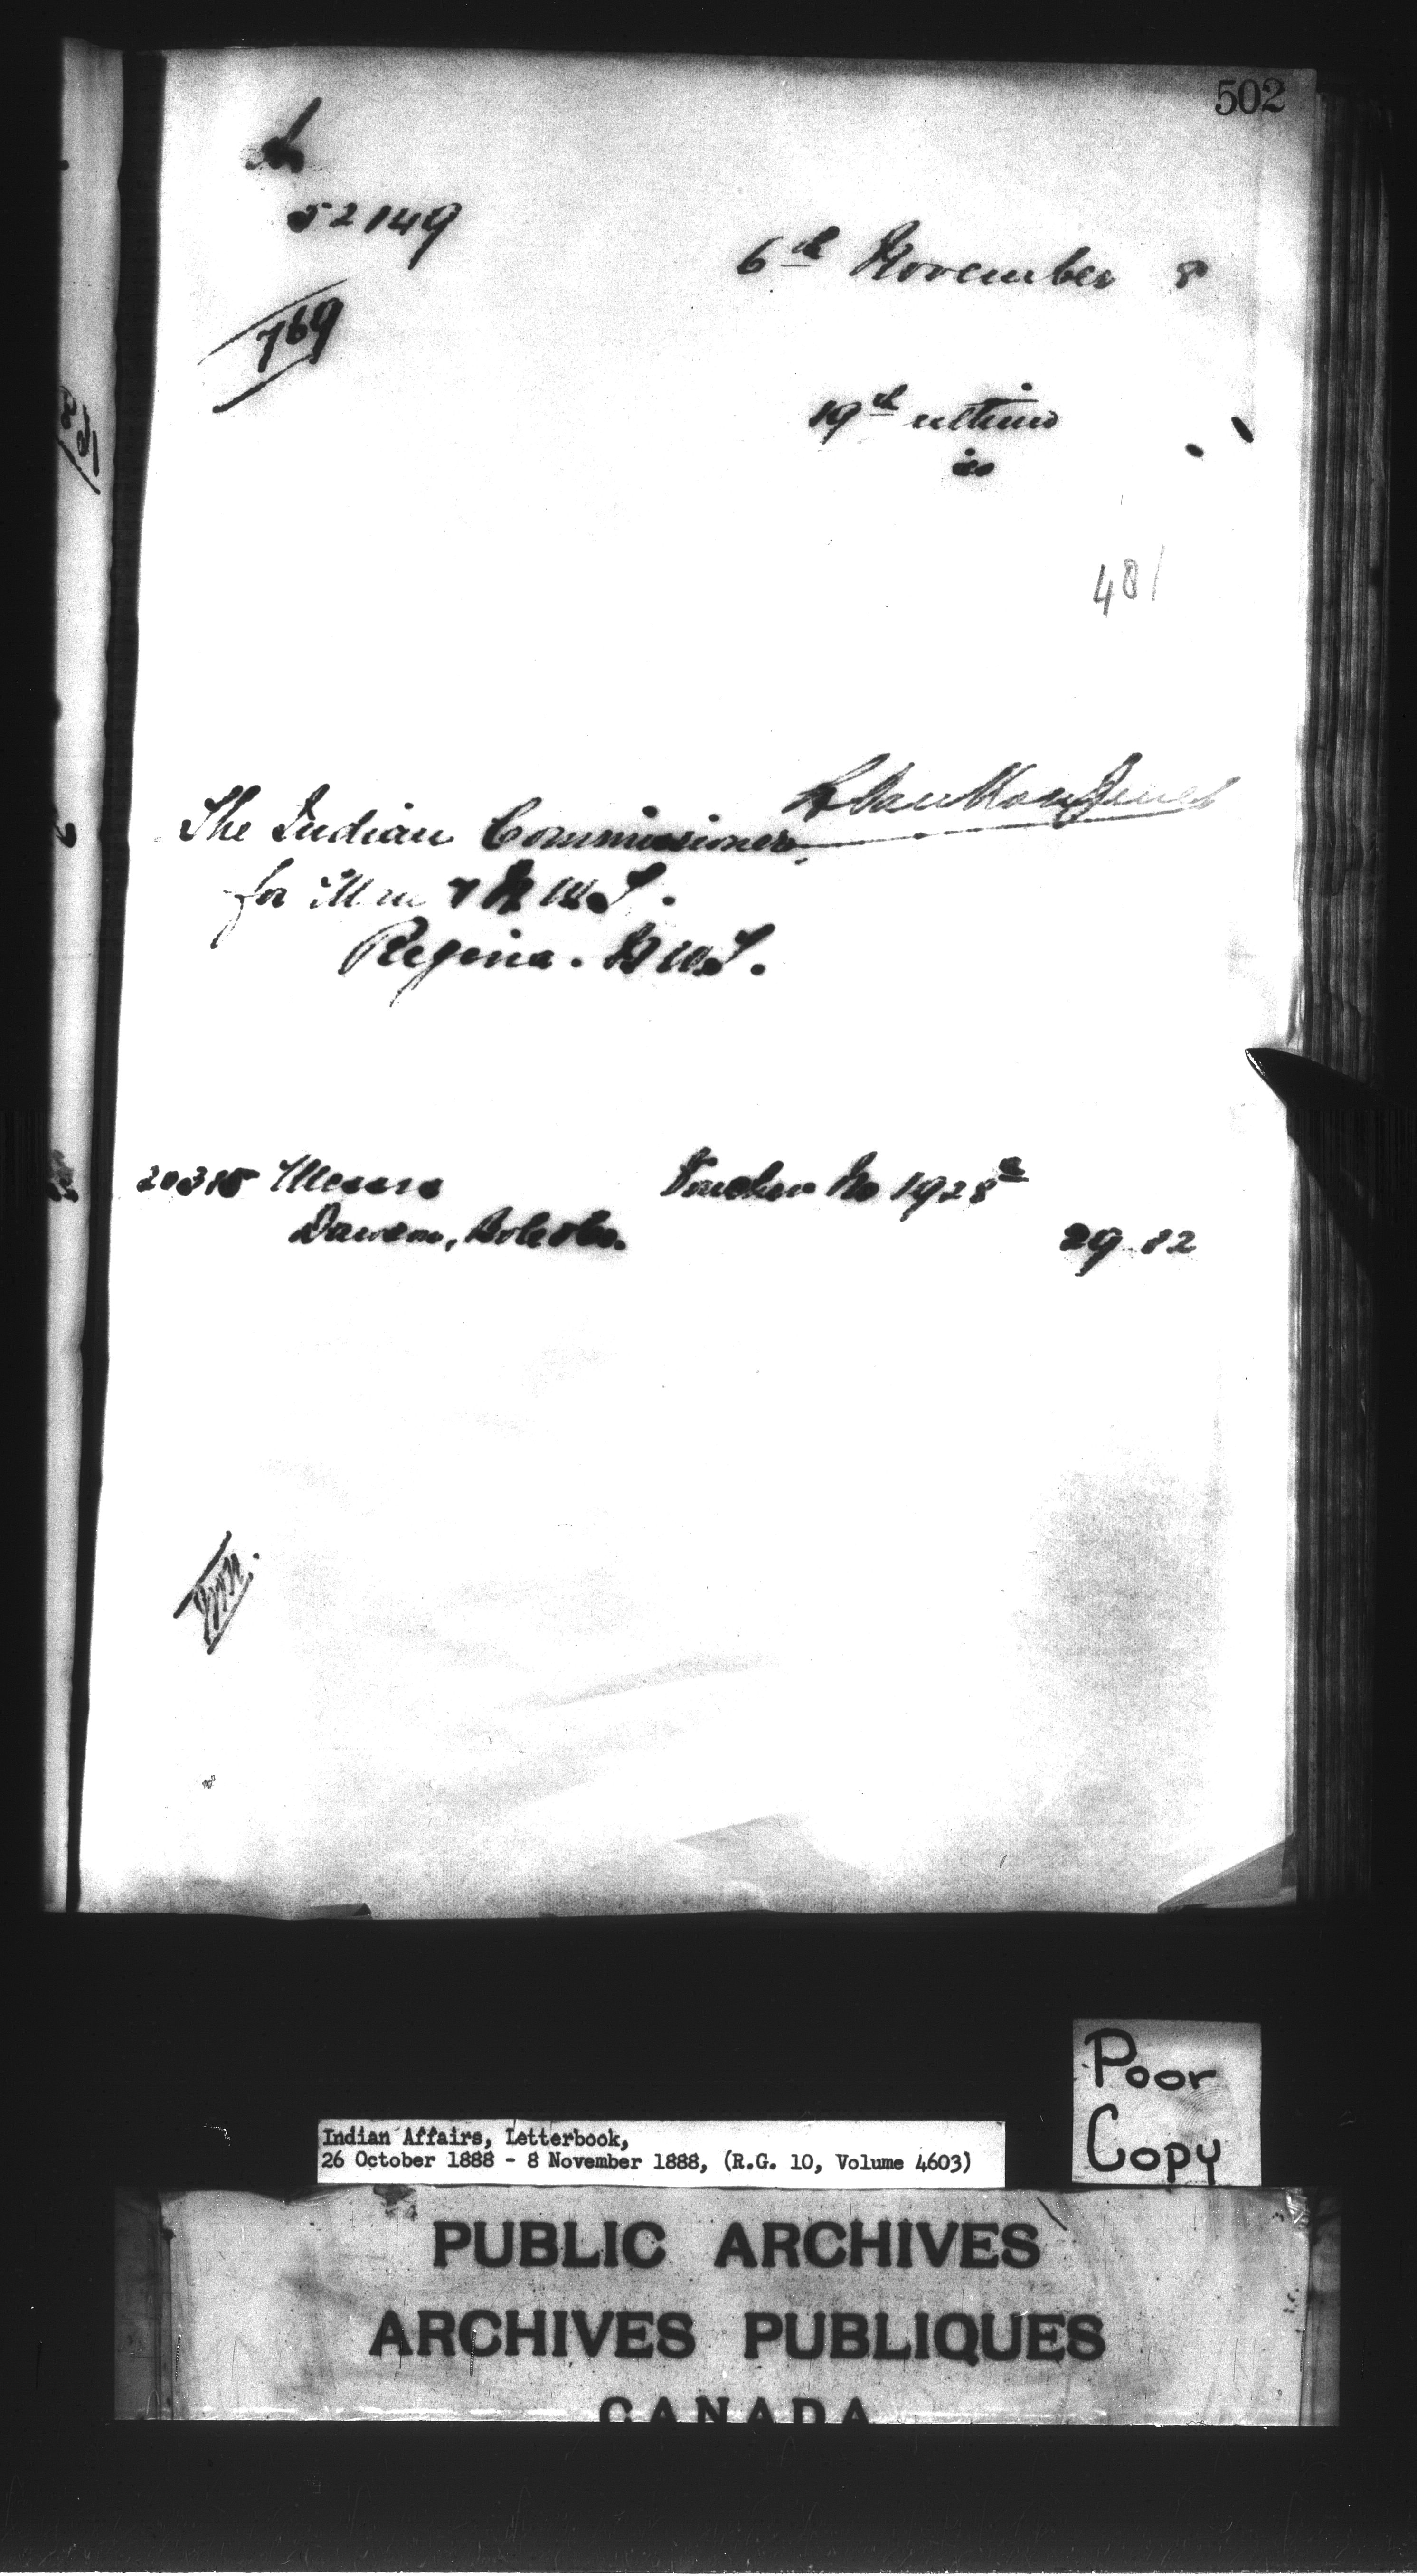 502
52149
6th November 8
769
19th ultimo
is
481
The Indian Commissioner,
for Man & N.W.T.
Regina. N.W.T.
20315 Messrs Voucher No 1928
Dawson, Bole & Co. 29.82
Poor
Copy
Indian Affairs, Letterbook,
26 October 1888 - 8 November 1888, (R.G. 10, Volume 4603)
PUBLIC ARCHIVES
ARCHIVES PUBLIQUES
CANADA